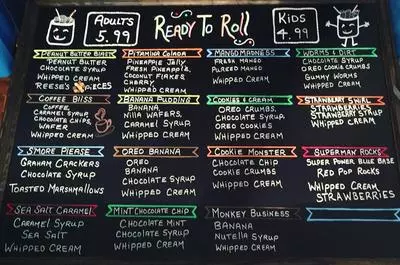 ADULTS
5.99
READY TO ROLL
KIDS
4.99
PEANUT BUTTER BLAST
PEANUT BUTTER
CHOCOLATE SYRUP
WHIPPED CREAM
REESE'S PIECES
PITAMINA COLADA
PINEAPPLE JELLY
FRESH PINEAPPLE
COCONUT FLAKES
CHERRY
WHIPPED CREAM
MANGO MADNESS
FRESH MANGO
PUREED MANGO
WHIPPED CREAM
WORMS & DIRT
CHOCOLATE SYRUP
OREO COOKIE CRUMBS
GUMMY WORMS
WHIPPED CREAM
COFFEE BLISS
COFFEE
CARAMEL SYRUP
CHOCOLATE CHIPS
WAFER
WHIPPED CREAM
BANANA PUDDING
BANANA
NILLA WAFERS
CARAMEL SYRUP
WHIPPED CREAM
COOKIES & CREAM
OREO CRUMBS
CHOCOLATE SYRUP
OREO COOKIES
WHIPPED CREAM
STRAWBERRY SWIRL
STRAWBERRIES
STRAWBERRY SYRUP
WHIPPED CREAM
S'MORE PLEASE
GRAHAM CRACKERS
CHOCOLATE SYRUP
TOASTED MARSHMALLOWS
OREO BANANA
OREO
BANANA
CHOCOLATE SYRUP
WHIPPED CREAM
COOKIE MONSTER
CHOCOLATE CHIP
COOKIE CRUMBS
WHIPPED CREAM
SUPERMAN ROCKS
SUPER POWER BLUE BASE
RED POP ROCKS
WHIPPED CREAM
STRAWBERRIES
SEA SALT CARAMEL
CARAMEL SYRUP
SEA SALT
WHIPPED CREAM
MINT CHOCOLATE CHIP
CHOCOLATE MINT
CHOCOLATE SYRUP
WHIPPED CREAM
MONKEY BUSINESS
BANANA
NUTELLA SYRUP
WHIPPED CREAM